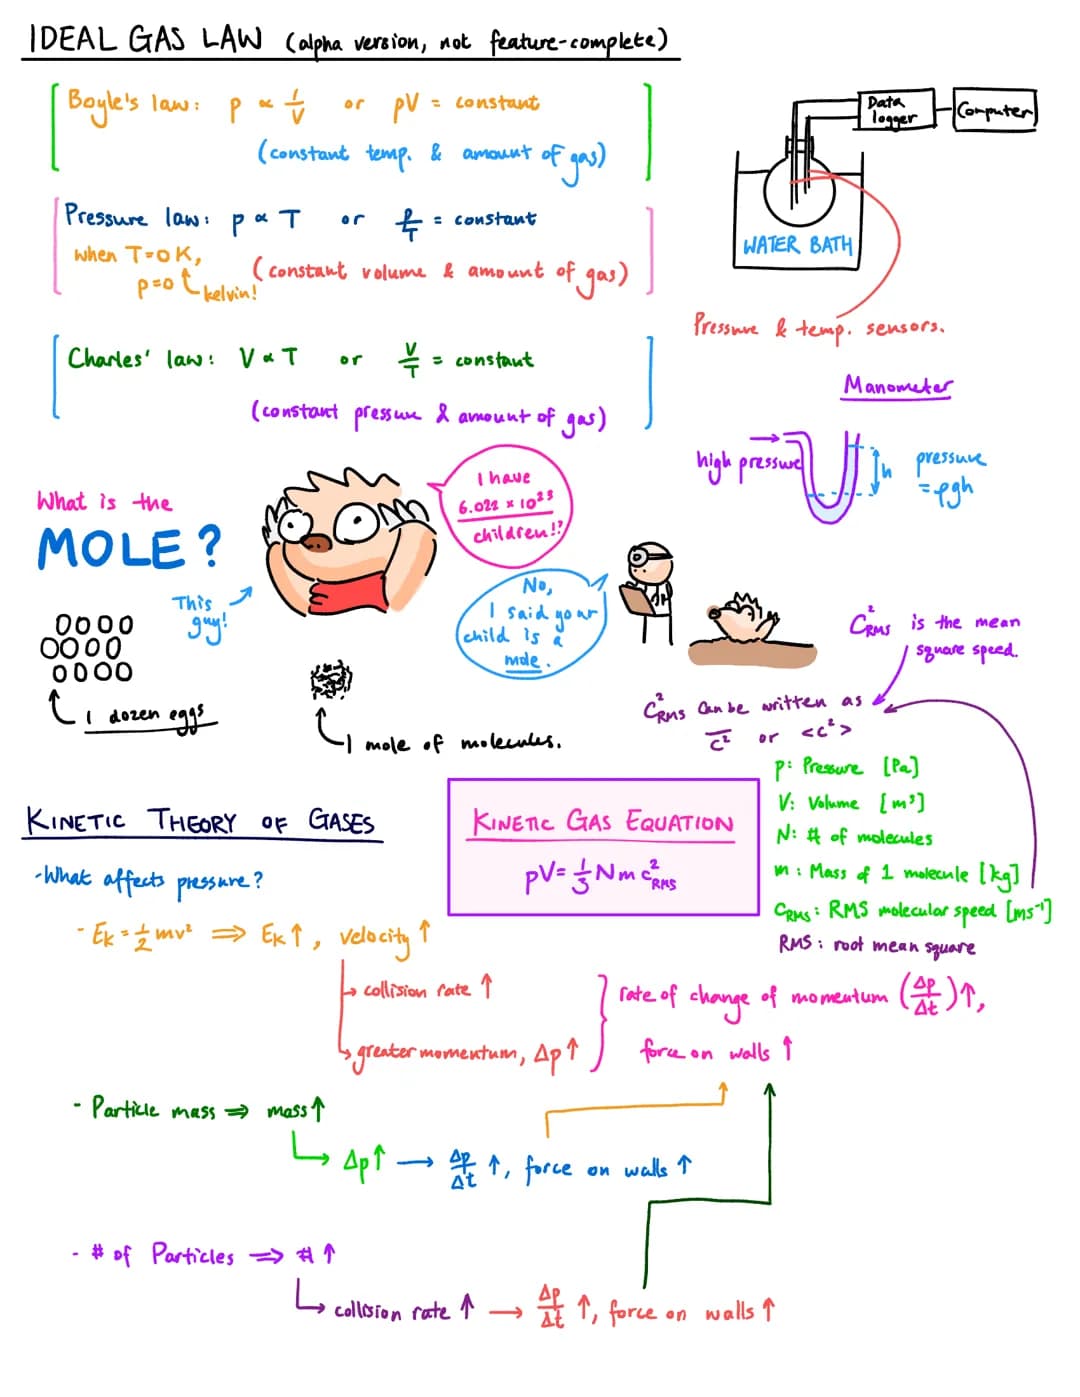 IDEAL GAS LAW (alpha version, not feature-complete)
Boyle's law: p ∝ 1/V or pV = constant
(constant temp. & amount of gas)
Pressure law: p ∝ T or p/T = constant
when T=0K,
p=0
kelvin!
(constant volume & amount of gas)
Charles' law: V ∝ T or V/T = constant
(constant pressure & amount of gas)
Data
logger
Computer
WATER BATH
Pressure & temp. sensors.
Manometer
high pressure
h
pressure
= ρgh
What is the
MOLE?
This
guy!
I have
6.022 × 10²³
children!?
No,
I said your
child is a
mole.
1 dozen eggs
1 mole of molecules.
C²RMS is the mean
square speed.
C²RMS can be written as
c̅² or <c²>
KINETIC THEORY OF GASES
KINETIC GAS EQUATION
pV = 1/3 N m c²RMS
p: Pressure [Pa]
V: Volume [m³]
N: # of molecules
m: Mass of 1 molecule [kg]
CRMS: RMS molecular speed [ms⁻¹]
RMS: root mean square
-What affects pressure?
- Ek = 1/2 mv² ⇒ Ek ↑, velocity ↑
↳ collision rate ↑
↳ greater momentum, Δp ↑
rate of change of momentum (Δp/Δt) ↑,
force on walls ↑
- Particle mass ⇒ mass ↑
↳ Δp ↑ → Δp/Δt ↑, force on walls ↑
- # of Particles ⇒ # ↑
↳ collision rate ↑ → Δp/Δt ↑, force on walls ↑